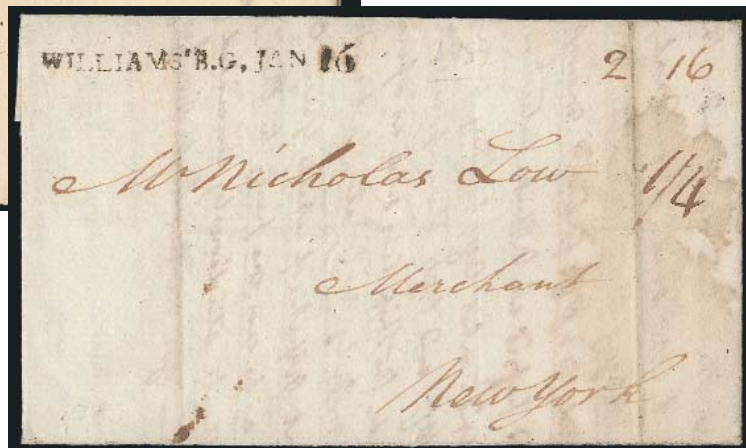 WILLIAMS'B.G, JAN 16
2 16
Mr Nicholas Low
1/4
Merchant
New York